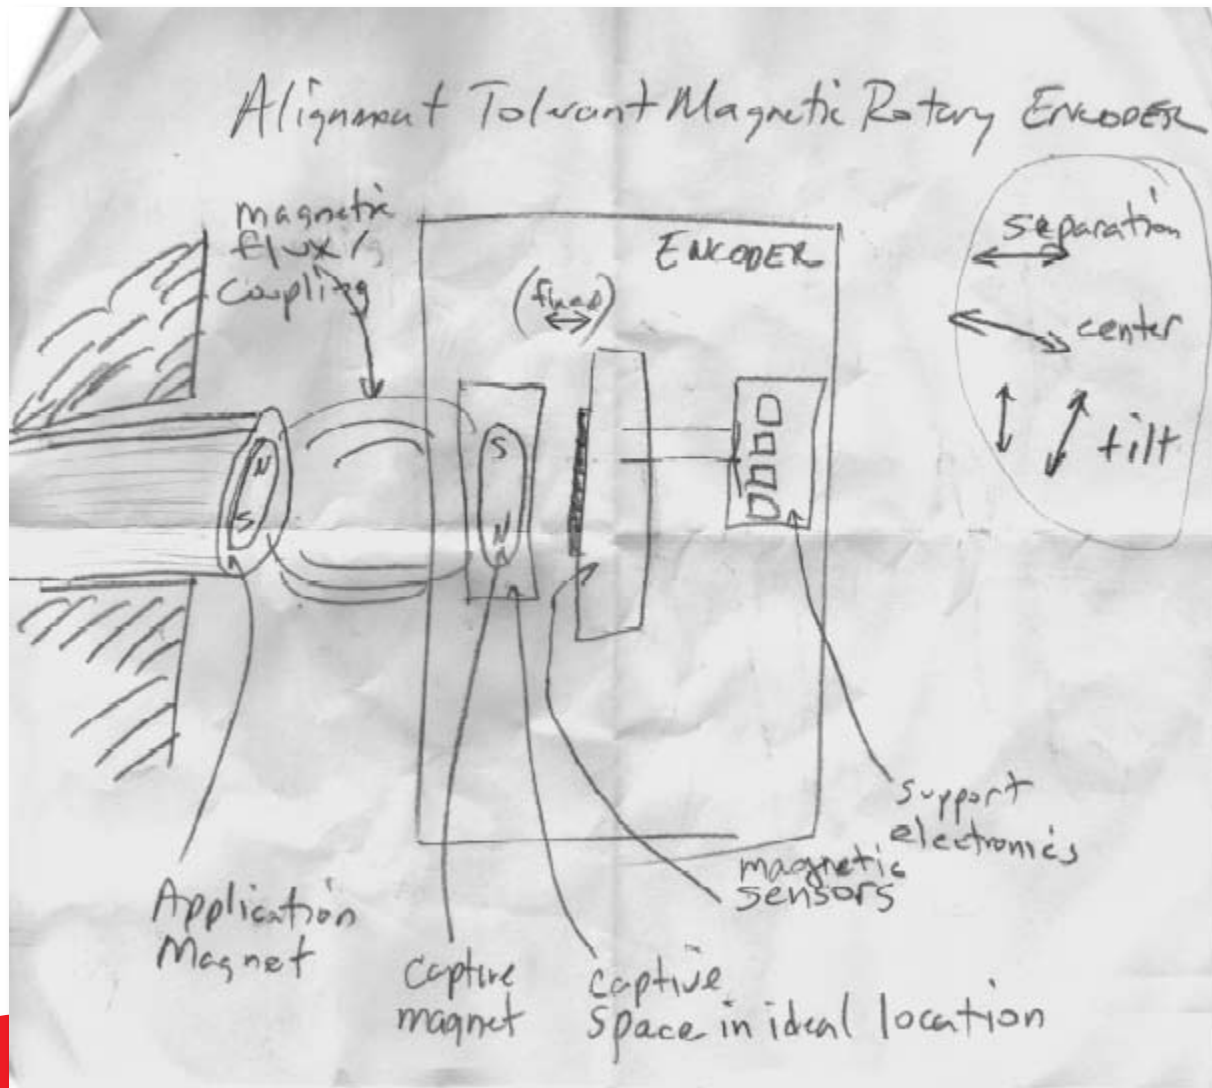 Alignment Tolerant Magnetic Rotary ENCODER
magnetic
flux/g
coupling
ENCODER
(fixed)
separation
center
tilt
N
S
S
N
support
electronics
magnetic
sensors
Application
Magnet
captive
magnet
captive
space in ideal location